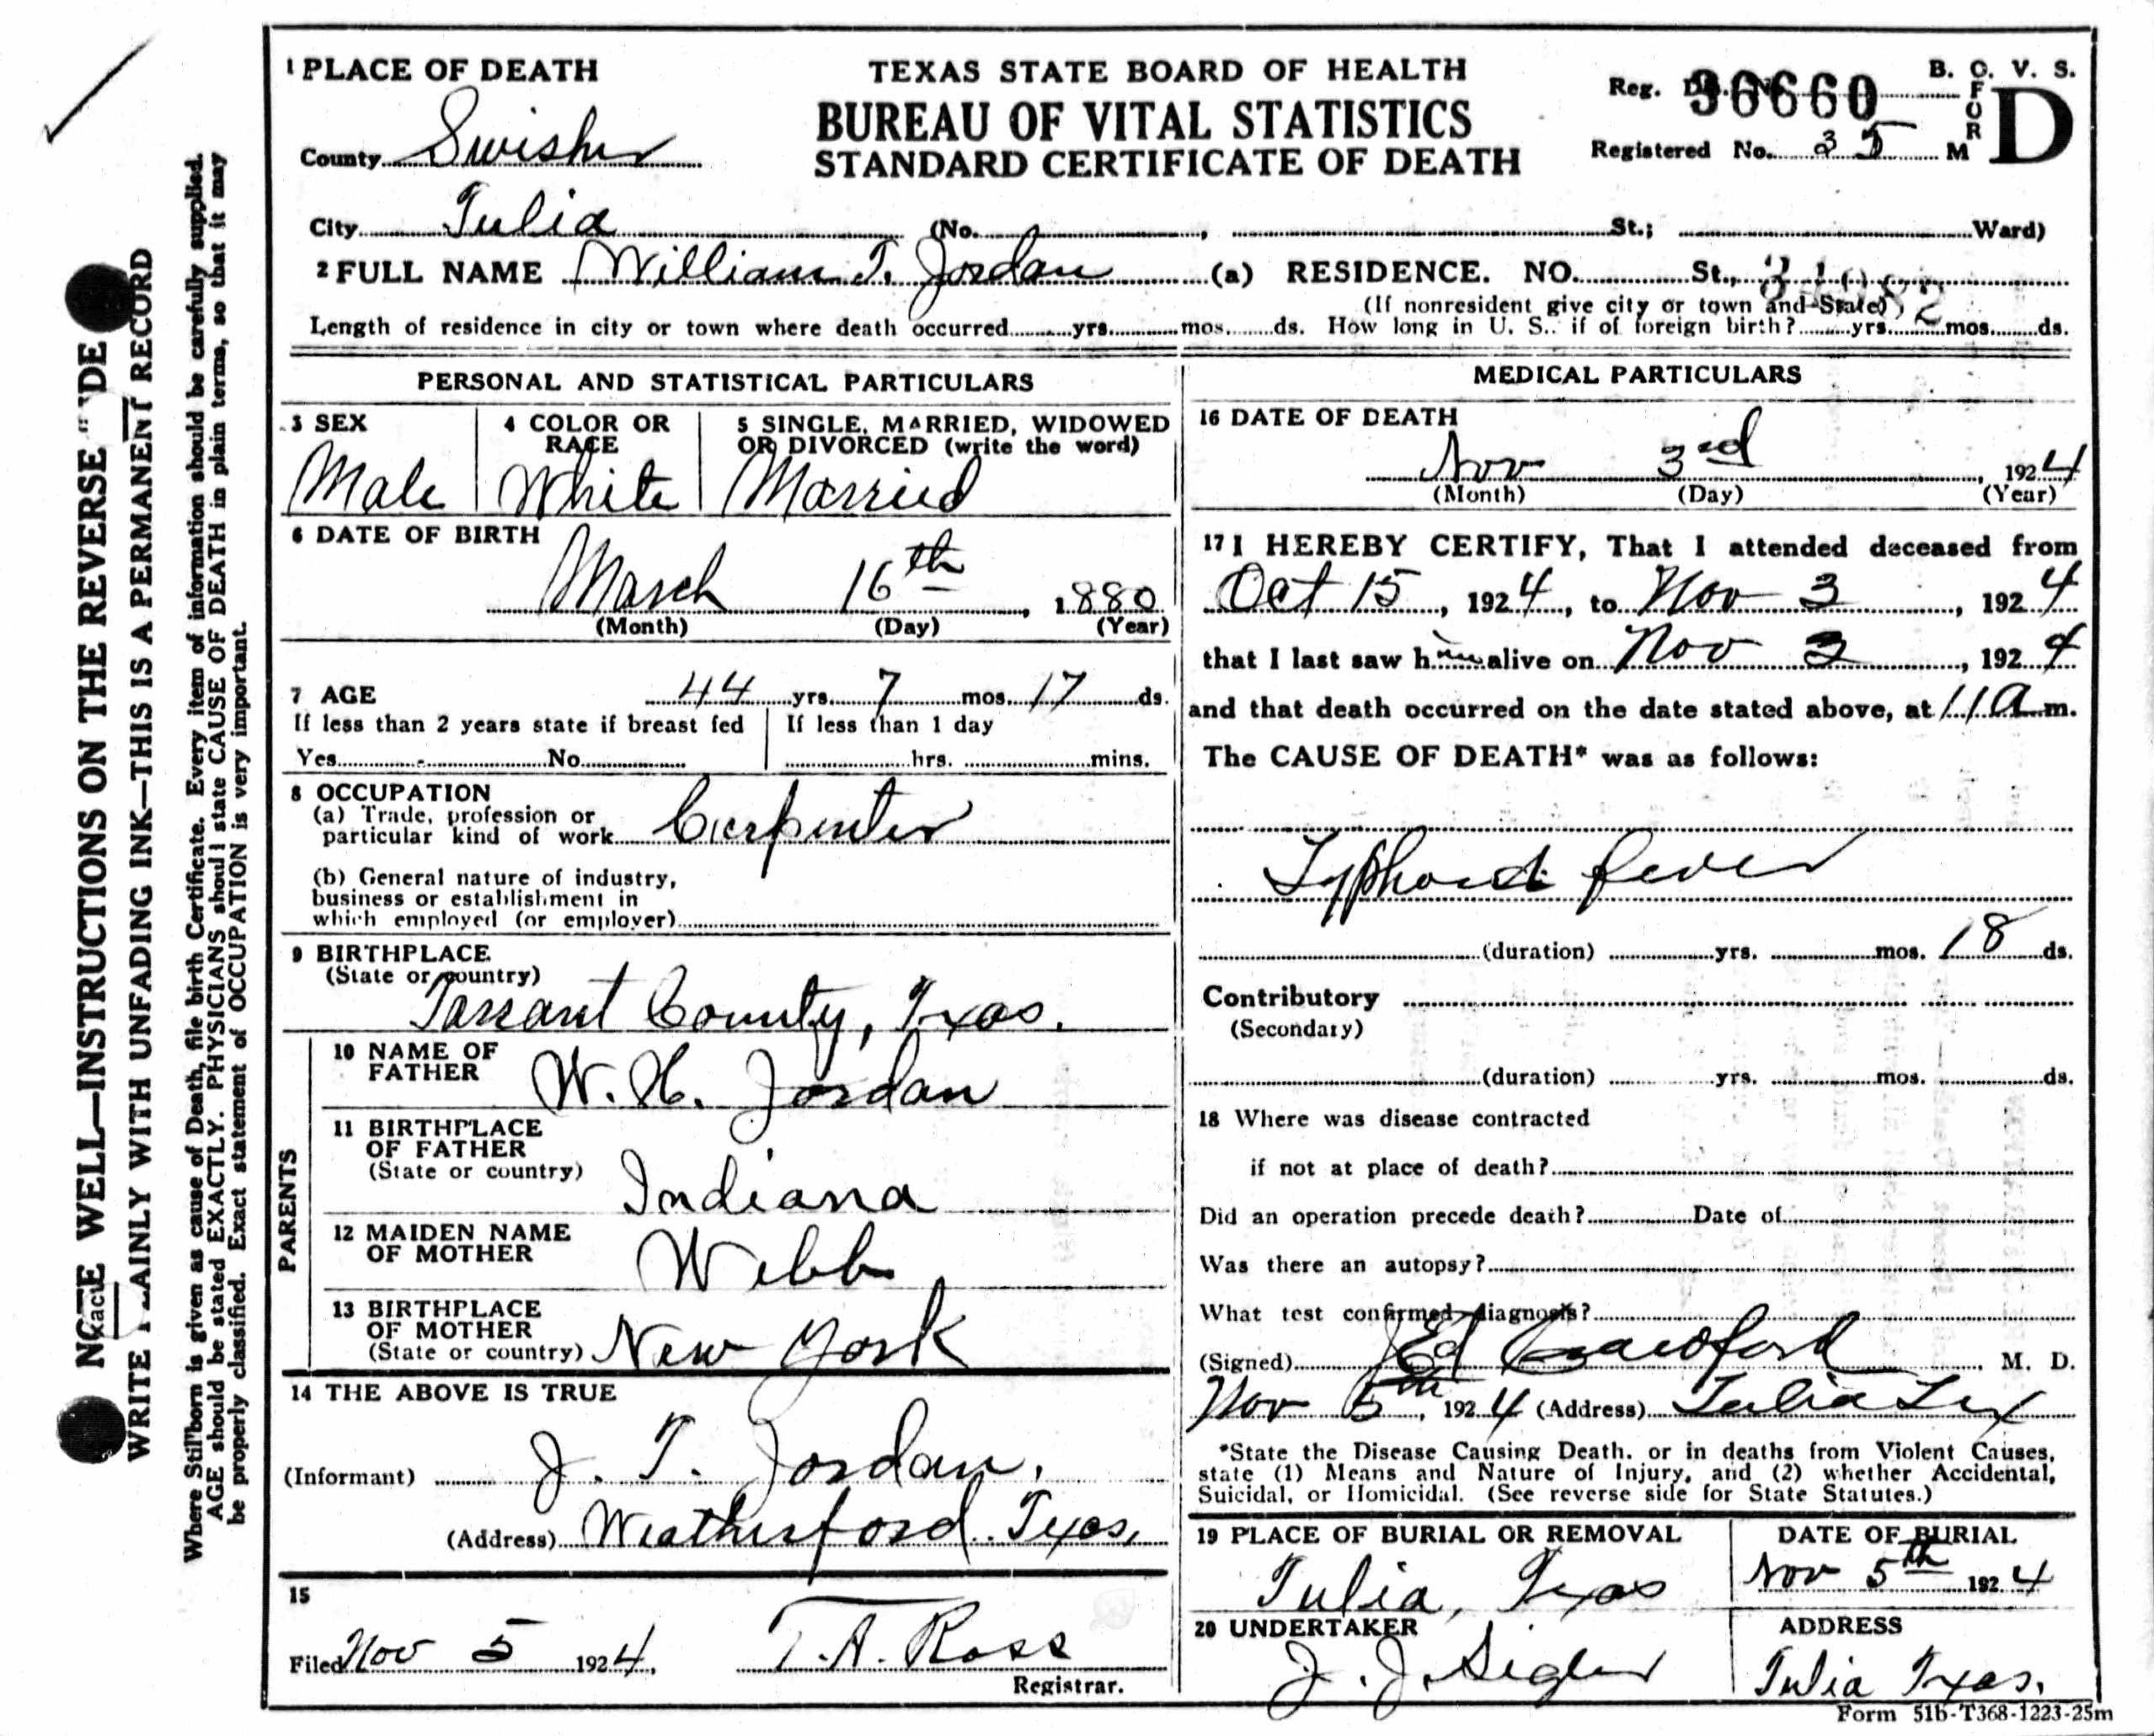 1 PLACE OF DEATH
TEXAS STATE BOARD OF HEALTH
BUREAU OF VITAL STATISTICS
STANDARD CERTIFICATE OF DEATH
B. O. V. S.
FORM D
Reg. 36660
Registered No. 35
County Swisher
City Tulia (No. , St.; Ward)
2 FULL NAME William T. Jordan (a) RESIDENCE. NO. St.,
(If nonresident give city or town and State)
Length of residence in city or town where death occurred yrs. mos. ds. How long in U. S., if of foreign birth? yrs. mos. ds.
PERSONAL AND STATISTICAL PARTICULARS
3 SEX
Male
4 COLOR OR RACE
White
5 SINGLE, MARRIED, WIDOWED
OR DIVORCED (write the word)
Married
6 DATE OF BIRTH
March 16th, 1880
(Month) (Day) (Year)
7 AGE 44 yrs. 7 mos. 17 ds.
If less than 2 years state if breast fed
Yes No
If less than 1 day
hrs. mins.
8 OCCUPATION
(a) Trade, profession or
particular kind of work Carpenter
(b) General nature of industry,
business or establishment in
which employed (or employer)
9 BIRTHPLACE
(State or country)
Tarrant County, Texas.
PARENTS
10 NAME OF
FATHER W. H. Jordan
11 BIRTHPLACE
OF FATHER
(State or country) Indiana
12 MAIDEN NAME
OF MOTHER Webb
13 BIRTHPLACE
OF MOTHER
(State or country) New York
14 THE ABOVE IS TRUE
(Informant) J. T. Jordan,
(Address) Weatherford Texas,
15
Filed Nov 5 1924, T. A. Ross
Registrar.
MEDICAL PARTICULARS
16 DATE OF DEATH
Nov 3rd, 1924
(Month) (Day) (Year)
17 I HEREBY CERTIFY, That I attended deceased from
Oct 15, 1924, to Nov 3, 1924
that I last saw him alive on Nov 3, 1924
and that death occurred on the date stated above, at 11 a m.
The CAUSE OF DEATH* was as follows:
Typhoid fever
(duration) yrs. mos. 18 ds.
Contributory
(Secondary)
(duration) yrs. mos. ds.
18 Where was disease contracted
if not at place of death?
Did an operation precede death? Date of
Was there an autopsy?
What test confirmed diagnosis?
(Signed) Crawford, M. D.
Nov 5th, 1924 (Address) Tulia Tex
*State the Disease Causing Death, or in deaths from Violent Causes,
state (1) Means and Nature of Injury, and (2) whether Accidental,
Suicidal, or Homicidal. (See reverse side for State Statutes.)
19 PLACE OF BURIAL OR REMOVAL
Tulia, Texas
DATE OF BURIAL
Nov 5th 1924
20 UNDERTAKER
J. J. Sigler
ADDRESS
Tulia Texas.
Form 51b-T368-1223-25m
NOTE WELL—INSTRUCTIONS ON THE REVERSE
WRITE PLAINLY WITH UNFADING INK—THIS IS A PERMANENT RECORD
Where Stillborn is given as cause of Death, file birth Certificate. Every item of information should be carefully supplied.
AGE should be stated EXACTLY. PHYSICIANS should state CAUSE OF DEATH in plain terms, so that it may
be properly classified. Exact statement of OCCUPATION is very important.